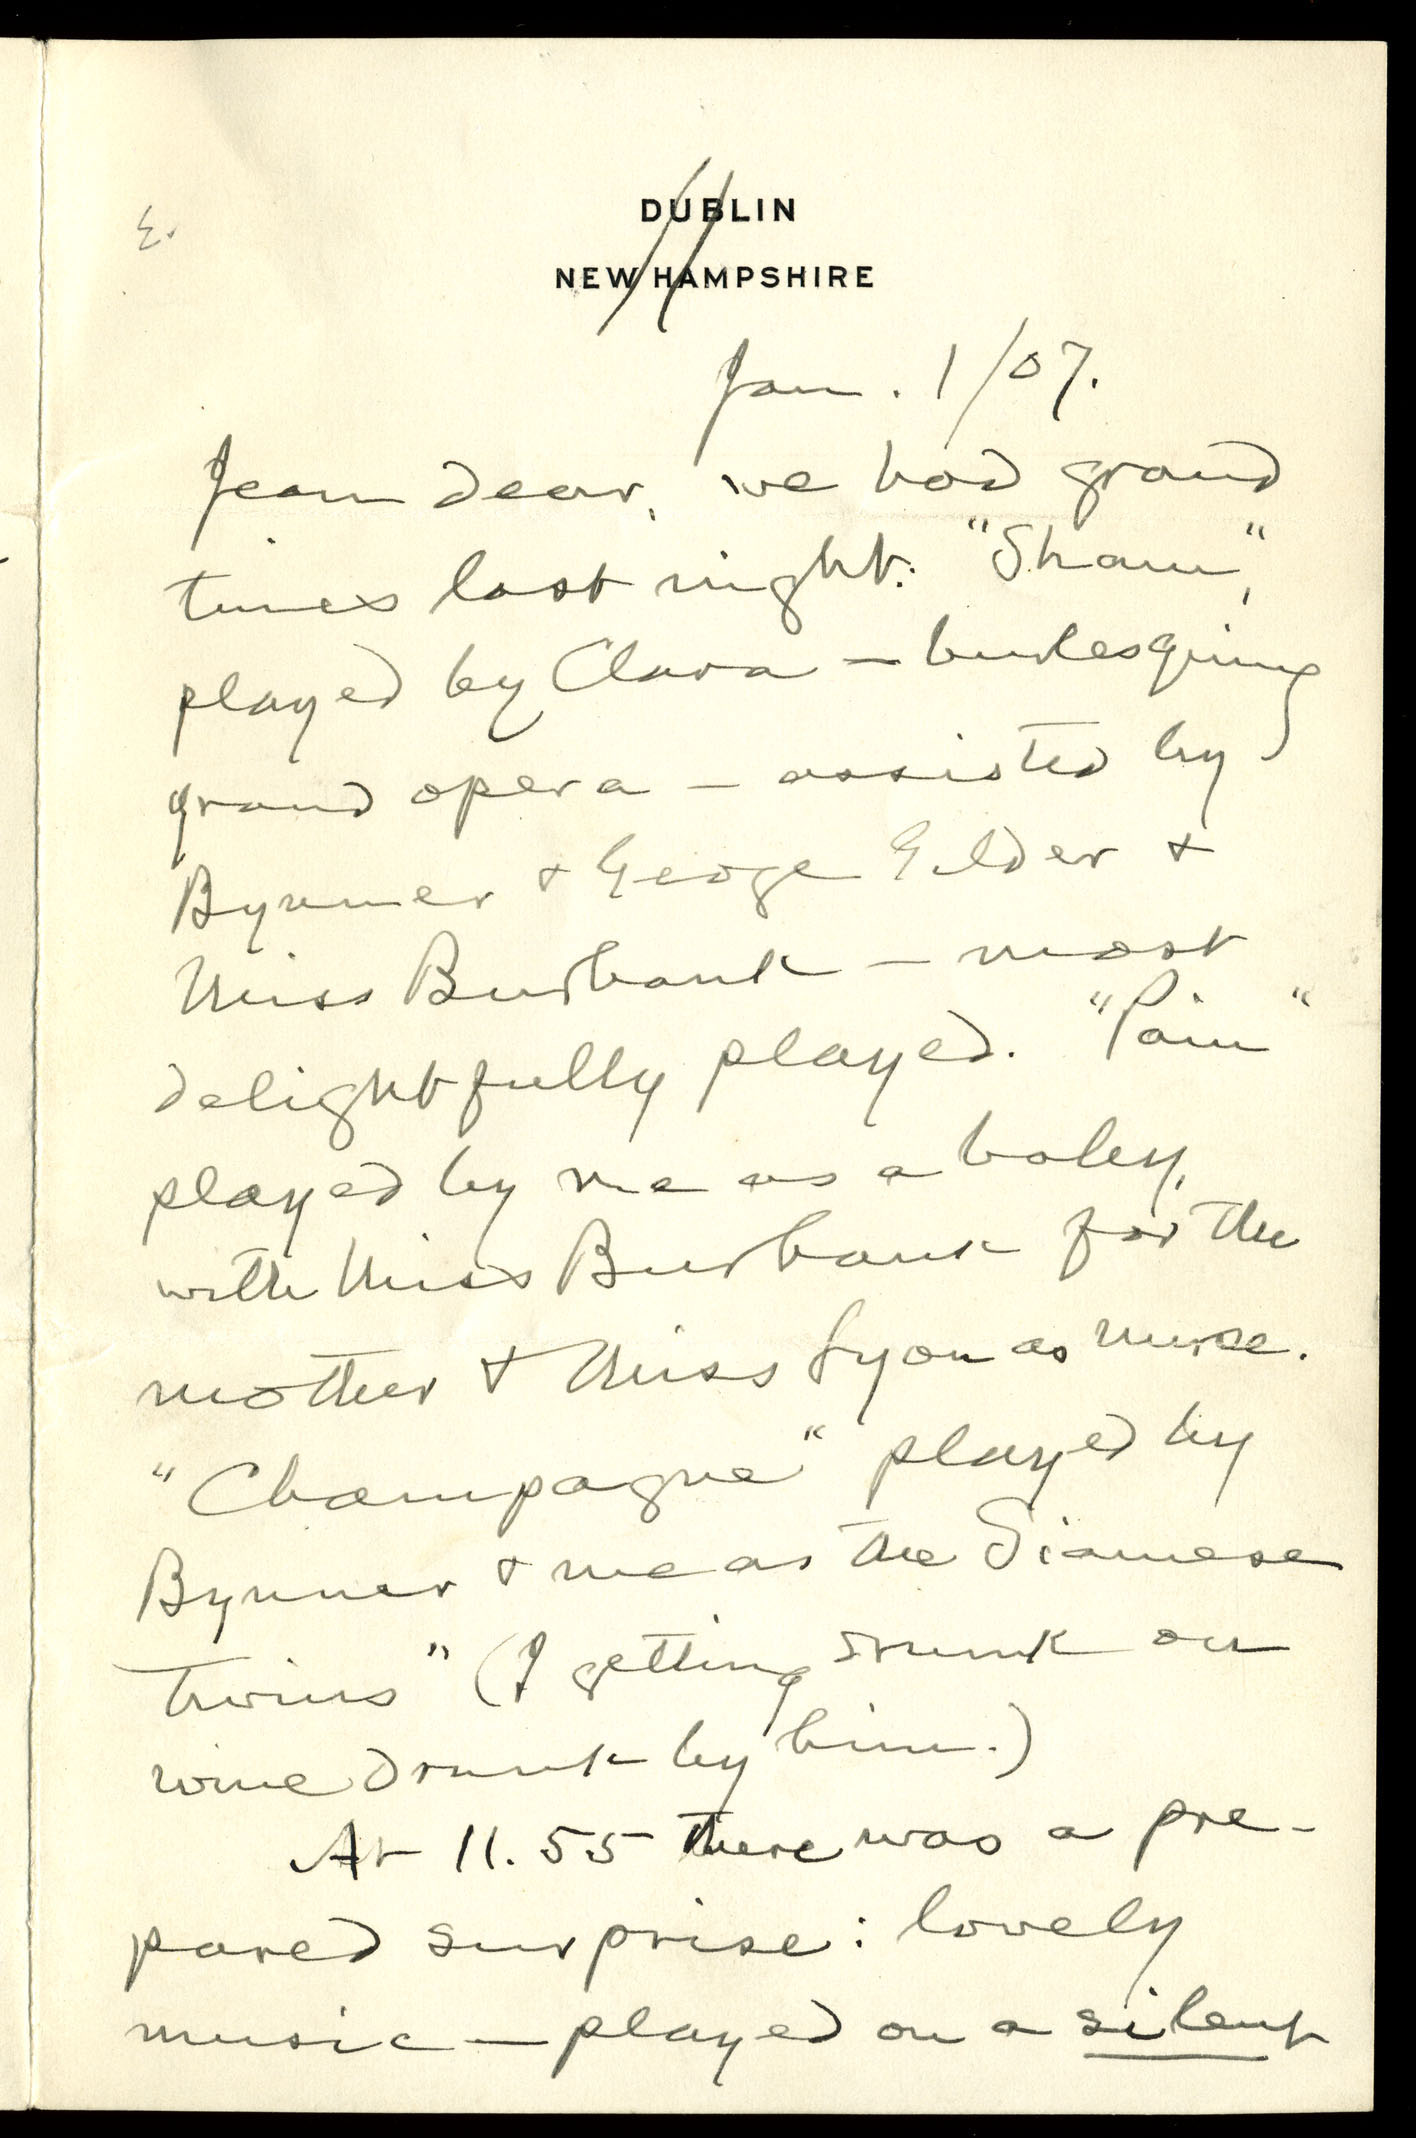 DUBLIN
NEW HAMPSHIRE
Jan. 1/07.
Jean dear, we had grand
times last night. "Sham",
played by Clara — burlesquing
grand opera — assisted by
Bynner & George Gilder &
Miss Burbank — most
delightfully played. "Pain"
played by me as a baby,
with Miss Burbank for the
mother & Miss Lyon as nurse.
"Champagne" played by
Bynner & me as the Siamese
Twins" (I getting drunk on
wine drunk by him.)
At 11.55 there was a pre-
pared surprise: lovely
music — played on a silent